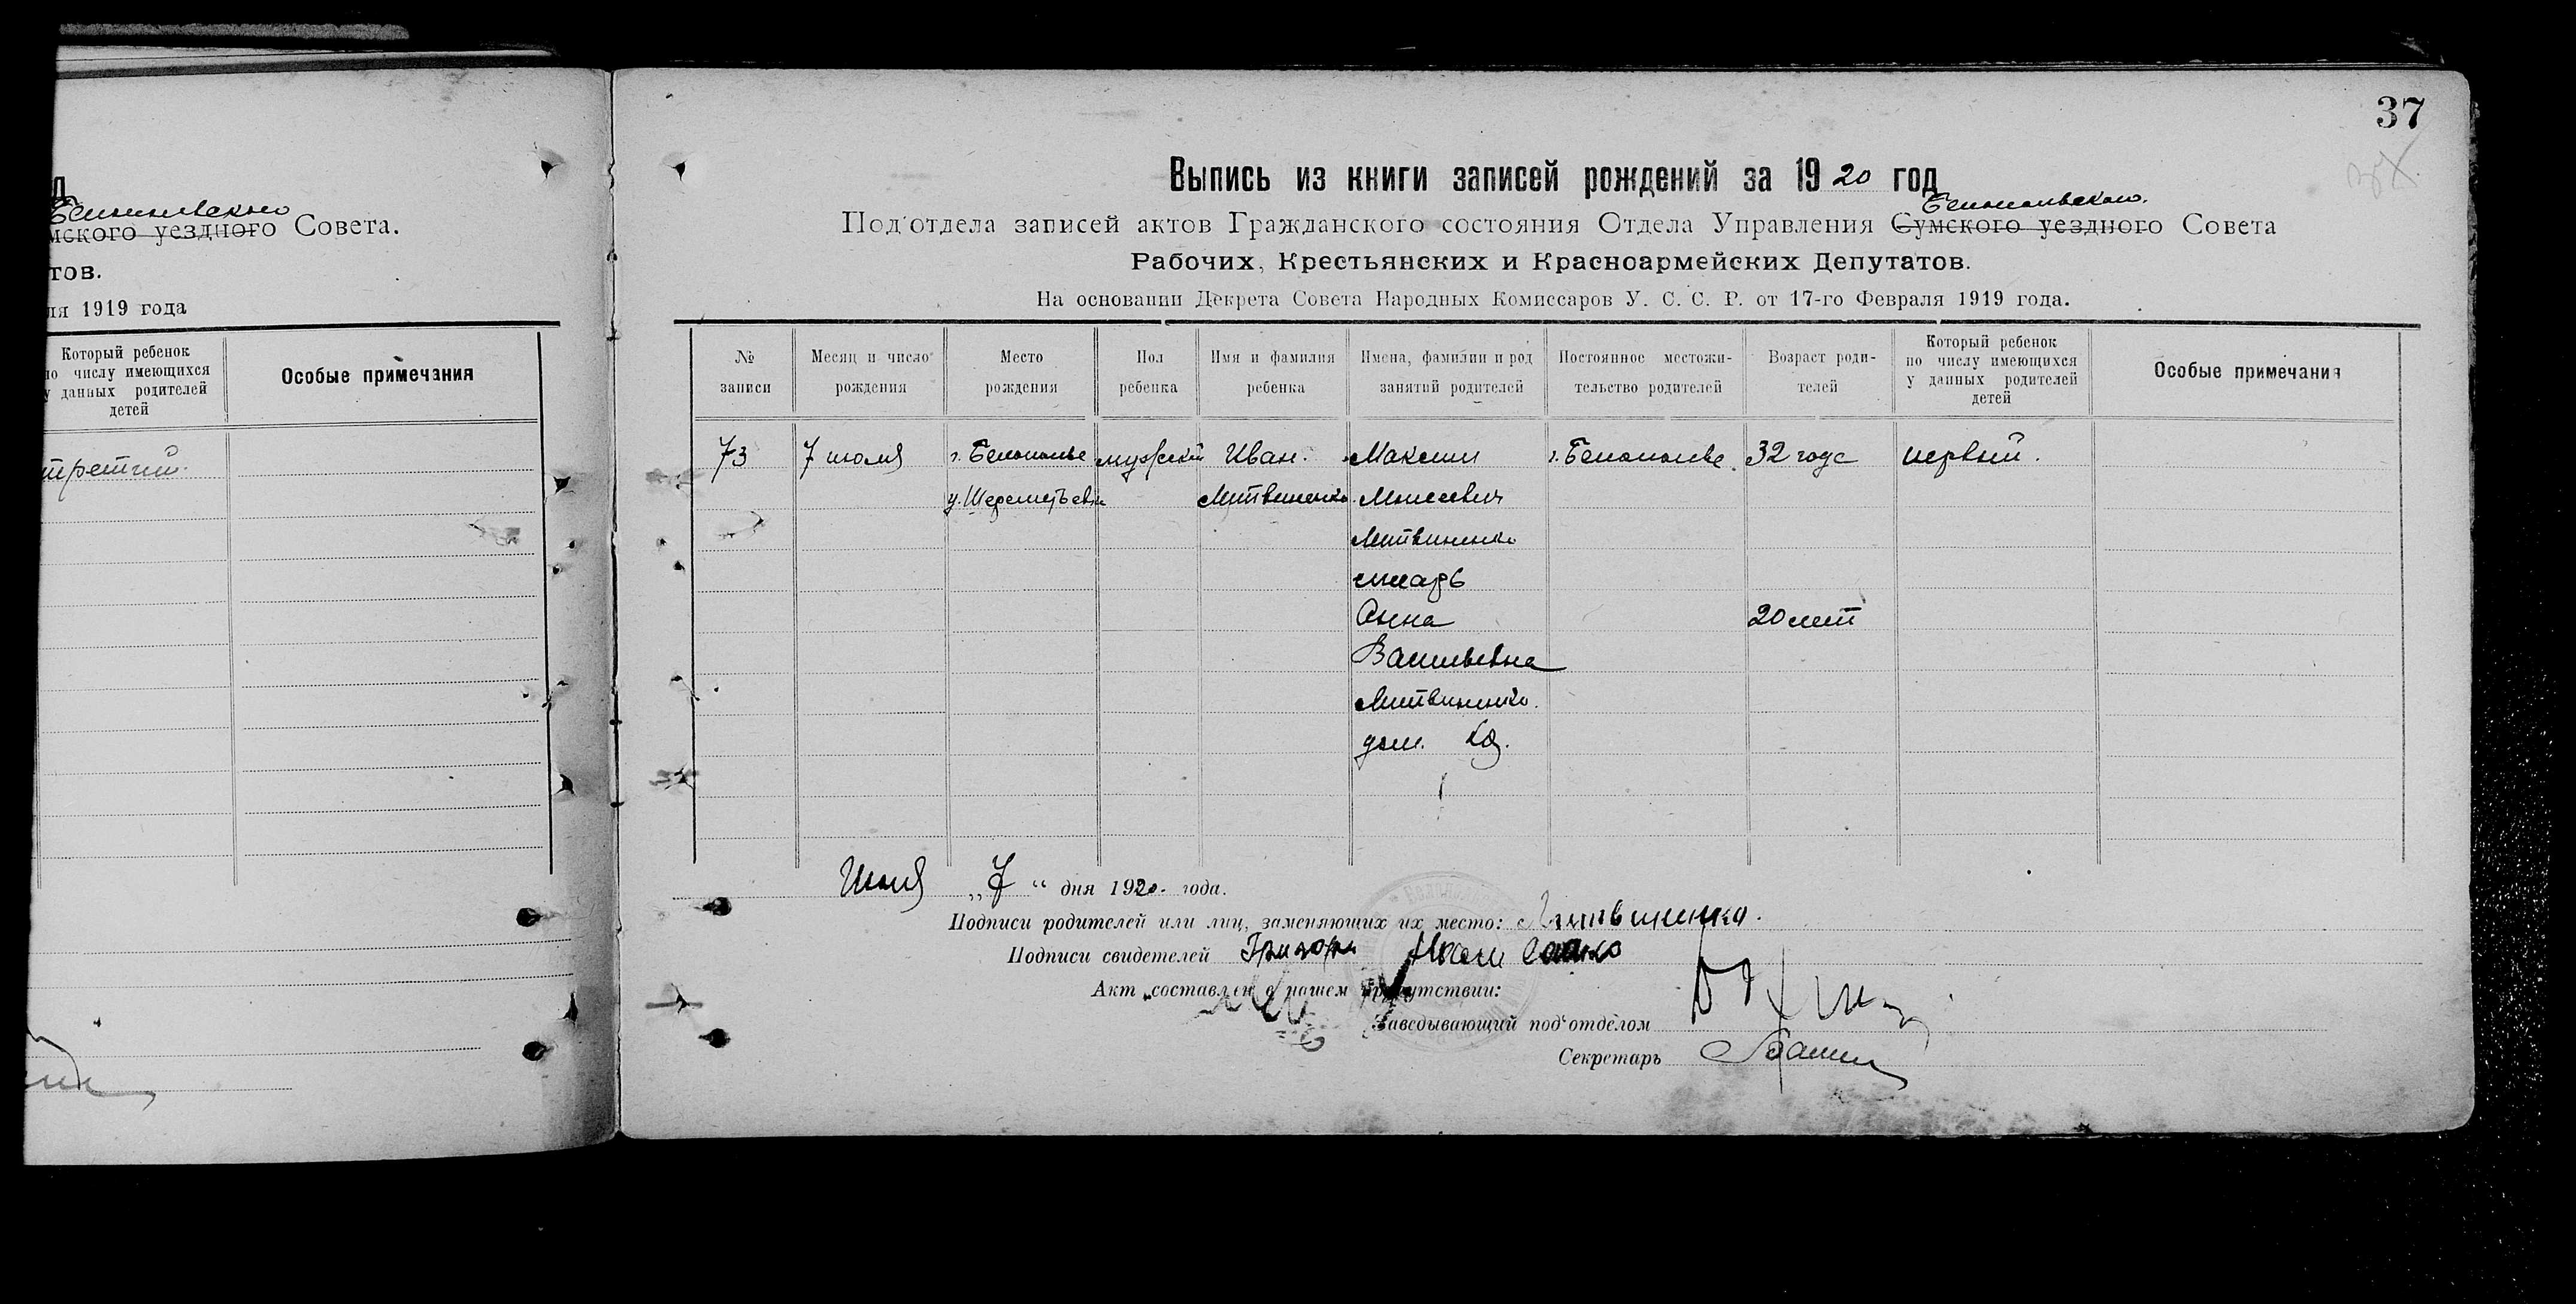 д
Белопольского
мского уездного Совета.
тов.
ля 1919 года
Который ребенок
по числу имеющихся
у данных родителей
детей
Особые примечания
третий.
37
Выпись из книги записей рождений за 1920 год
Белопольского.
Под'отдела записей актов Гражданского состояния Отдела Управления Сумского уездного Совета
Рабочих, Крестьянских и Красноармейских Депутатов.
На основании Декрета Совета Народных Комиссаров У. С. С. Р. от 17-го Февраля 1919 года.
№
записи
Месяц и число
рождения
Место
рождения
Пол
ребенка
Имя и фамилия
ребенка
Имена, фамилии и род
занятий родителей
Постоянное местожи-
тельство родителей
Возраст роди-
телей
Который ребенок
по числу имеющихся
у данных родителей
детей
Особые примечания
73 7 июля г. Белополье мужской Иван. Максим г. Белополье 32 года первый.
у. Шереметьевки Литвиненко. Моисеевич
Литвиненко
слесарь
Анна 20 лет
Васильевна
Литвиненко.
дом. хоз.
Июля „7“ дня 1920. года.
Подписи родителей или лиц, заменяющих их место: Литвиненко.
Подписи свидетелей
Акт составлен в нашем присутствии:
Заведывающий под'отделом
Секретарь